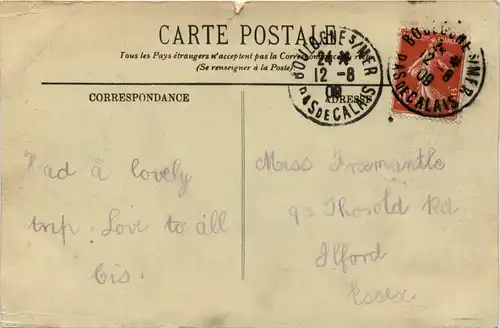 CARTE POSTALE
Tous les Pays étrangers n'acceptent pas la Correspondance au recto
(Se renseigner à la Poste)
BOULOGNE S/MER
12 - 8
09
PAS DE CALAIS
BOULOGNE S/MER
12 - 8
09
PAS DE CALAIS
CORRESPONDANCE
ADRESSE
Had a lovely
trip. Love to all
Cis.
Miss Fremantle
92 Thorold Rd
Ilford
Essex